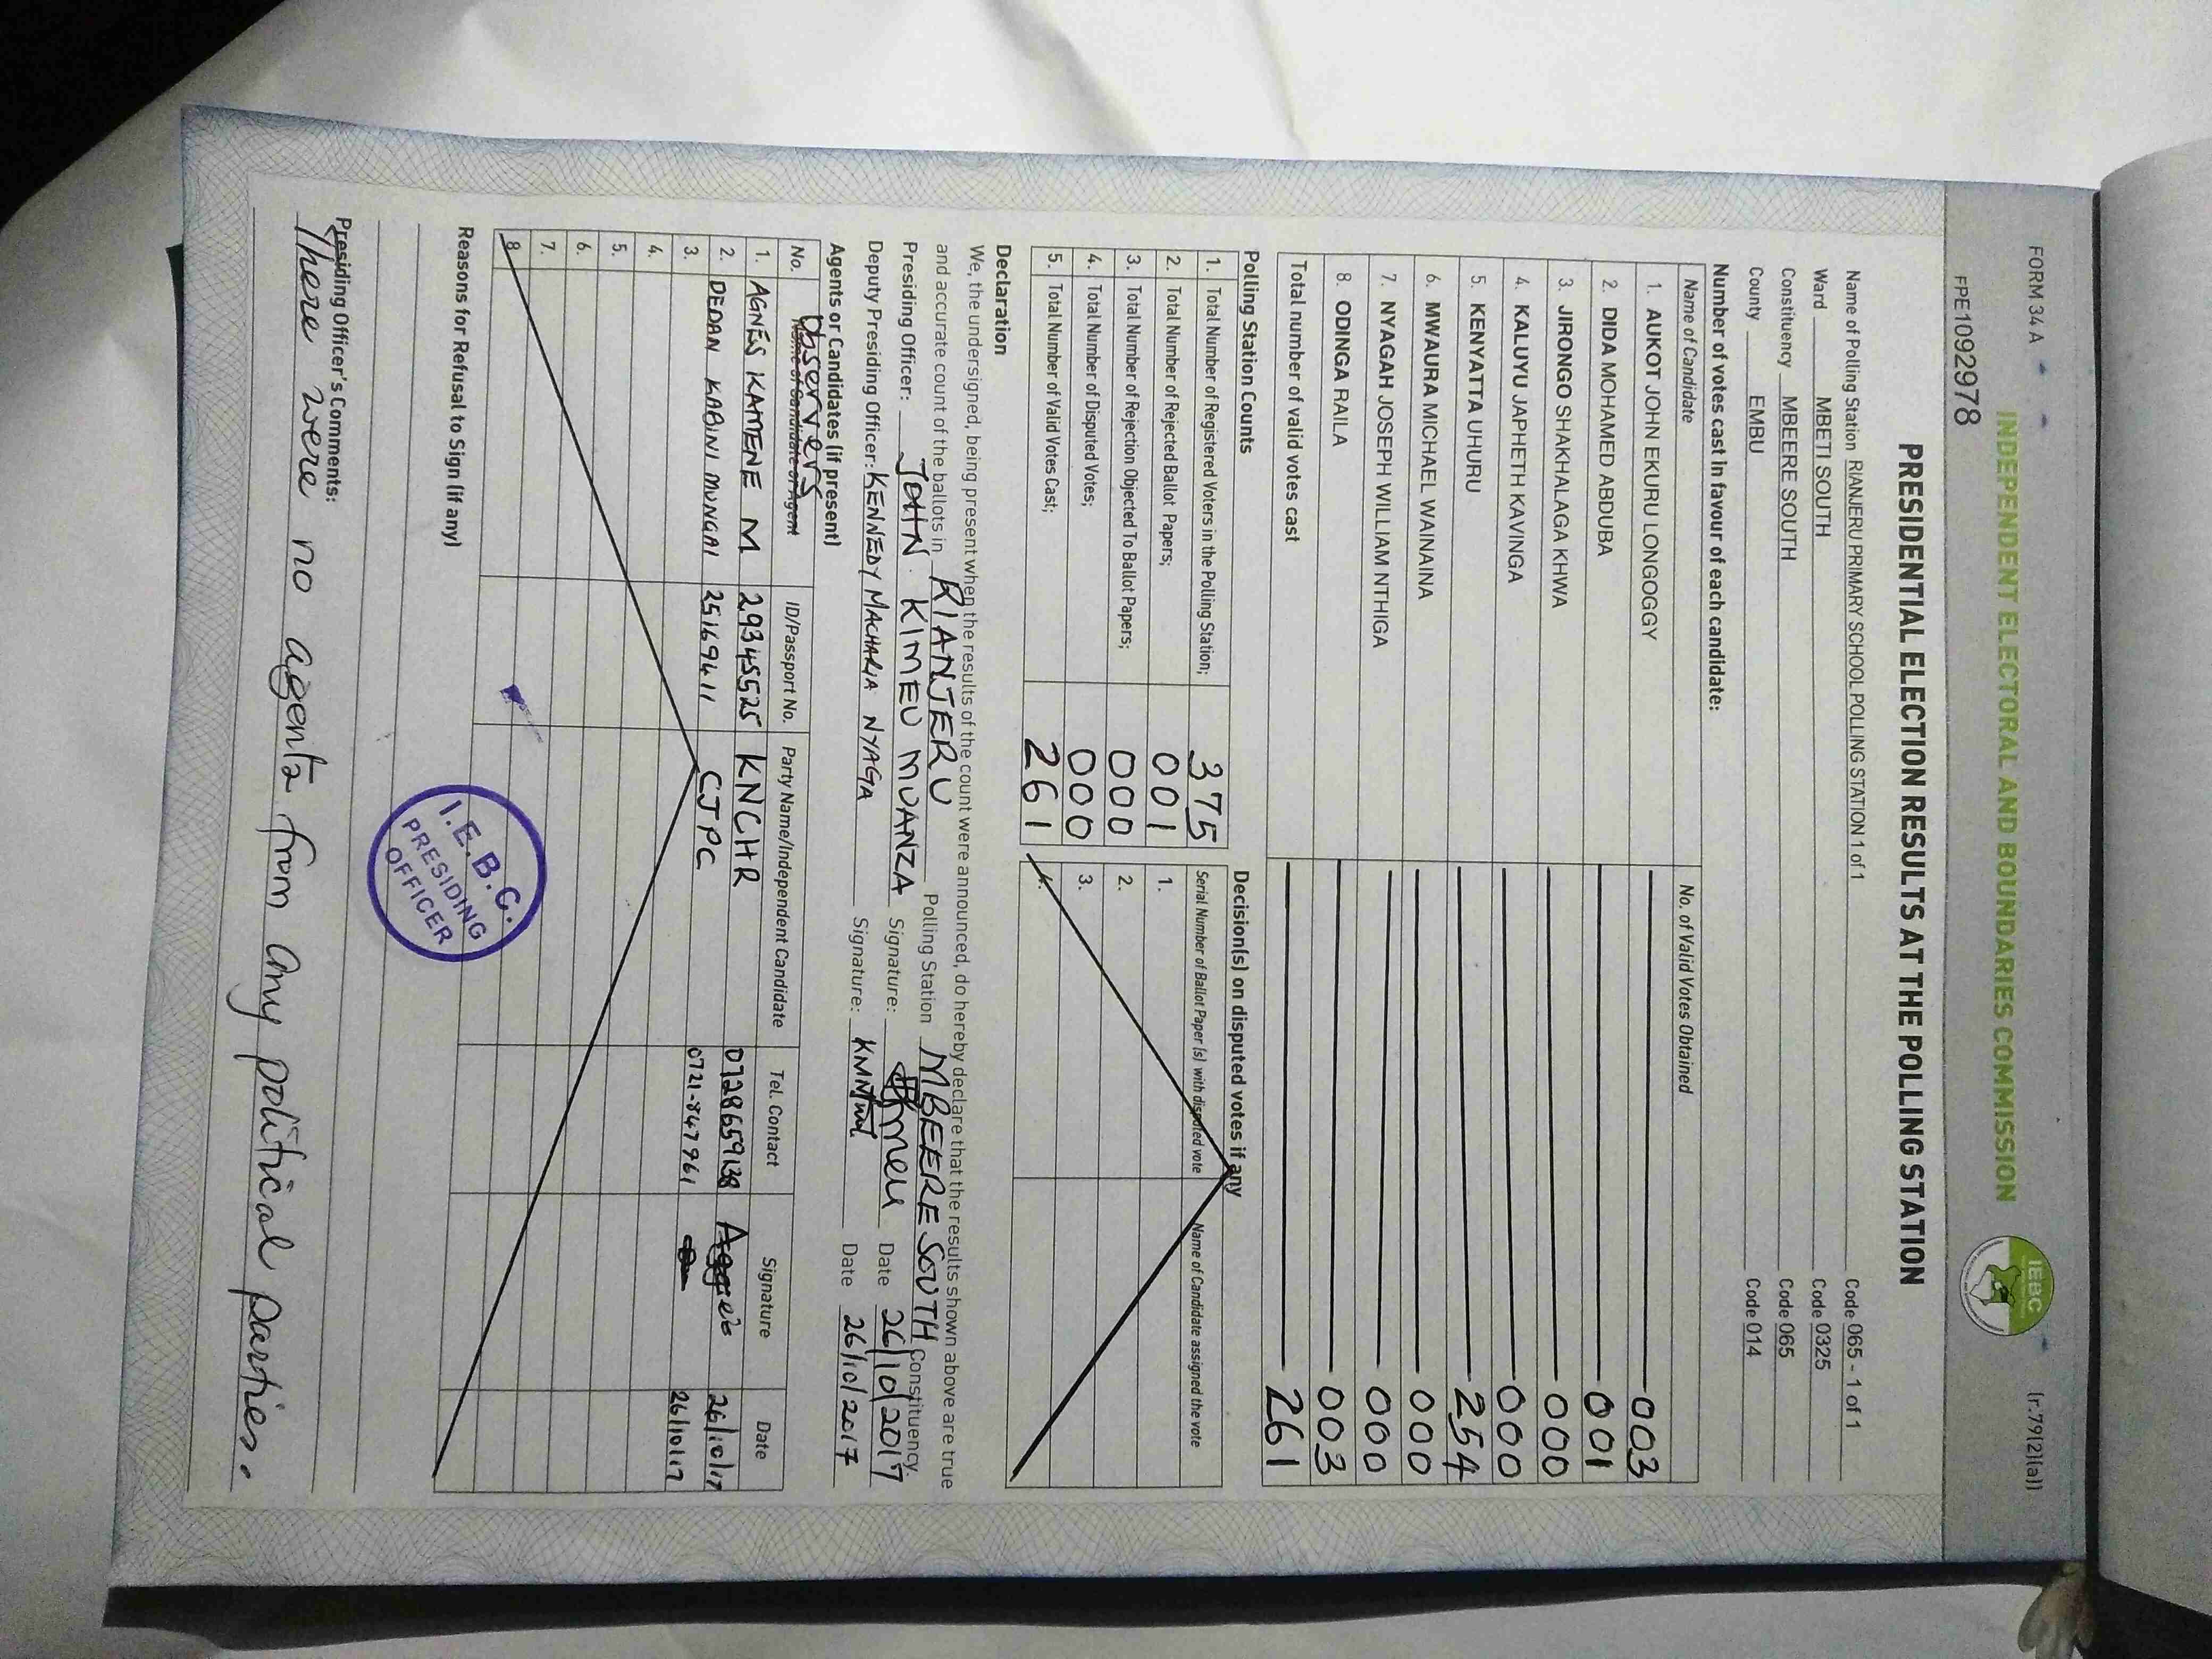 FORM 34 A
(r.79(2)(a))
INDEPENDENT ELECTORAL AND BOUNDARIES COMMISSION
IEBC
FPE1092978
PRESIDENTIAL ELECTION RESULTS AT THE POLLING STATION
Name of Polling Station RIANJERU PRIMARY SCHOOL POLLING STATION 1 of 1 Code 065 - 1 of 1
Ward MBETI SOUTH Code 0325
Constituency MBEERE SOUTH Code 065
County EMBU Code 014
Number of votes cast in favour of each candidate:
Name of Candidate No. of Valid Votes Obtained
1. AUKOT JOHN EKURU LONGOGGY 003
2. DIDA MOHAMED ABDUBA 001
3. JIRONGO SHAKHALAGA KHWA 000
4. KALUYU JAPHETH KAVINGA 000
5. KENYATTA UHURU 254
6. MWAURA MICHAEL WAINAINA 000
7. NYAGAH JOSEPH WILLIAM NTHIGA 000
8. ODINGA RAILA 003
Total number of valid votes cast 261
Polling Station Counts Decision(s) on disputed votes if any
1. Total Number of Registered Voters in the Polling Station; 375
2. Total Number of Rejected Ballot Papers; 001
3. Total Number of Rejection Objected To Ballot Papers; 000
4. Total Number of Disputed Votes; 000
5. Total Number of Valid Votes Cast; 261
Serial Number of Ballot Paper (s) with disputed vote Name of Candidate assigned the vote
1.
2.
3.
4.
Declaration
We, the undersigned, being present when the results of the count were announced, do hereby declare that the results shown above are true
and accurate count of the ballots in RIANJERU Polling Station MBEERE SOUTH Constituency.
Presiding Officer: JOHN KIMEU MUANZA Signature: Date 26/10/2017
Deputy Presiding Officer: KENNEDY MACHARIA NYAGA Signature: Date 26/10/2017
Agents or Candidates (if present)
Observers
No. Name of Candidate or Agent ID/Passport No. Party Name/Independent Candidate Tel. Contact Signature Date
1. AGNES KAMENE M 29345525 KNCHR 0728659138 26/10/17
2. DEDAN KABINI MUNGAI 25169411 CJPC 0721-847961 26/10/17
3.
4.
5.
6.
7.
8.
Reasons for Refusal to Sign (if any)
I.E.B.C.
PRESIDING
OFFICER
Presiding Officer's Comments:
There were no agents from any political parties.